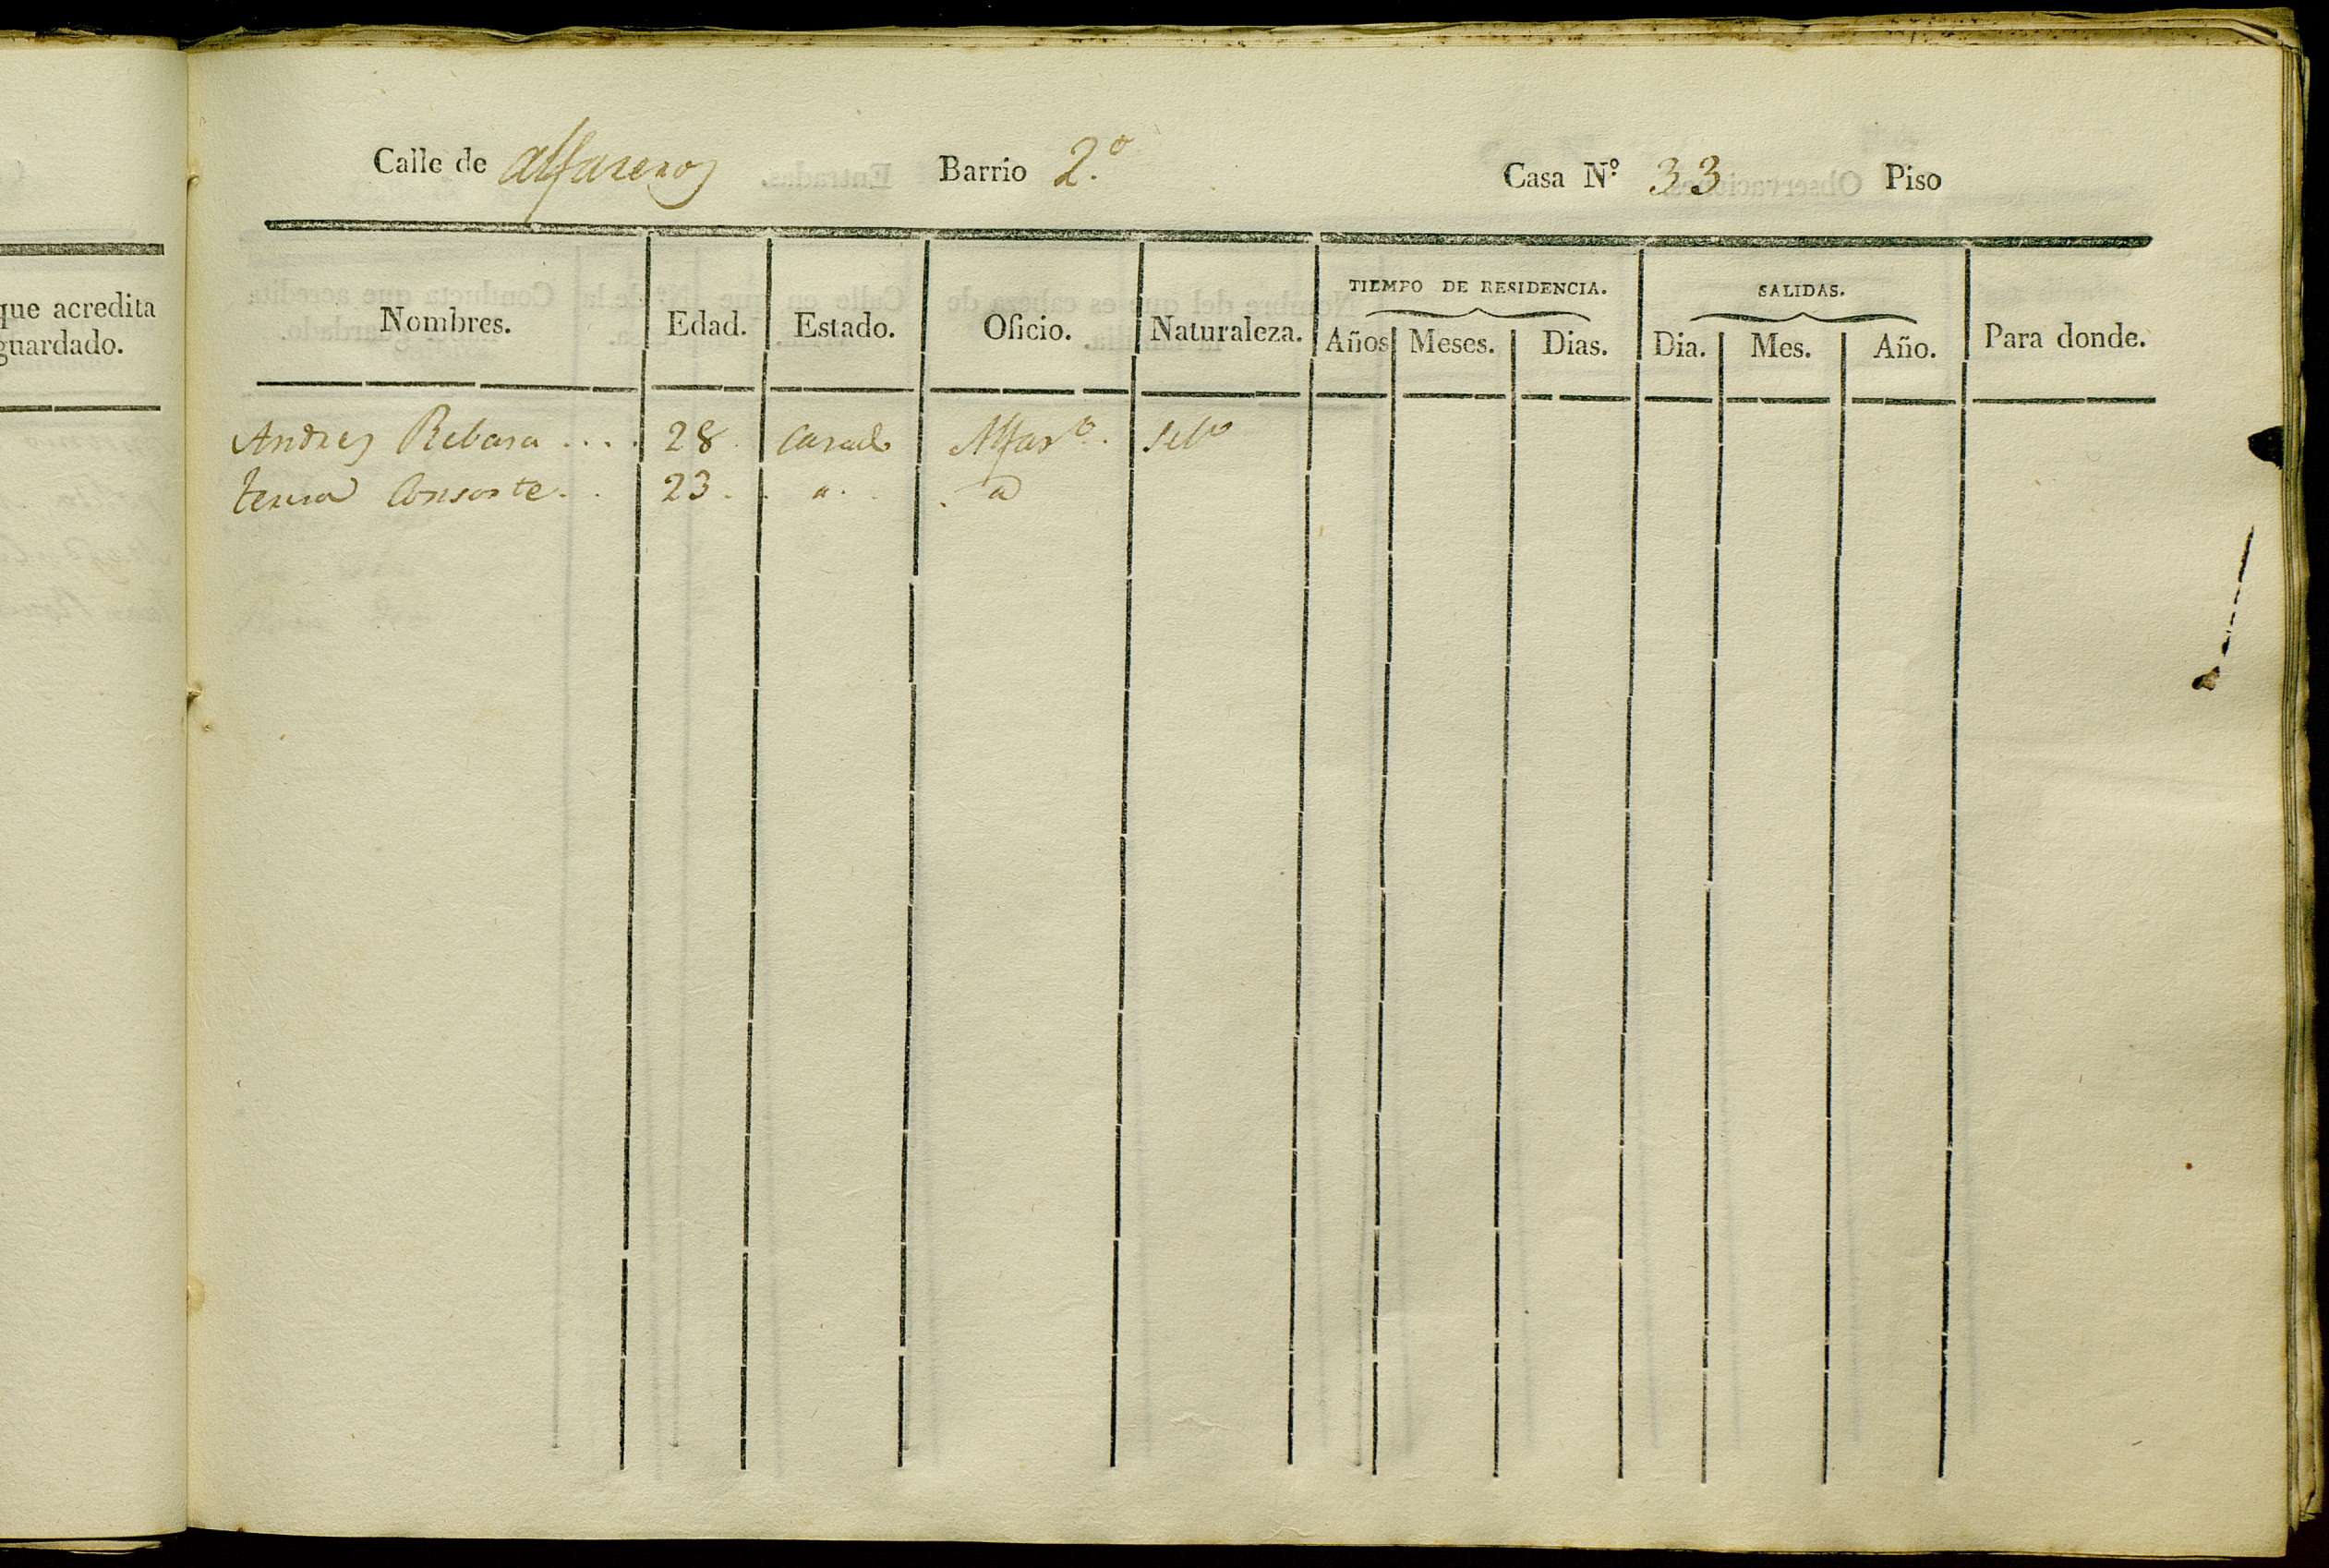 que acredita
guardado.
Calle de Alfareros Barrio 2.º Casa N.º 33 Piso
TIEMPO DE RESIDENCIA. SALIDAS.
Nombres. Edad. Estado. Oficio. Naturaleza. Años Meses. Dias. Dia. Mes. Año. Para donde.
Andres Ribara .... 28. Casado Alfar.º.
Consorte. . 23. . ". .